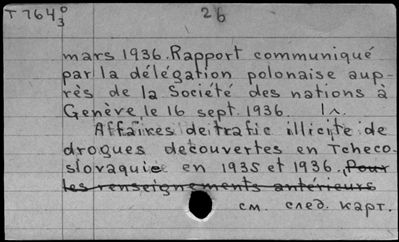 T 764⁰₃ 26
mars 1936. Rapport communiqué
par la délégation polonaise aup-
rès de la Société des nations à
Genève le 16 sept. 1936.
Affaires de trafic illicite de
drogues découvertes en Tcheco-
slovaquie en 1935 et 1936. Pour
les renseignements antérieurs
см. след. карт.